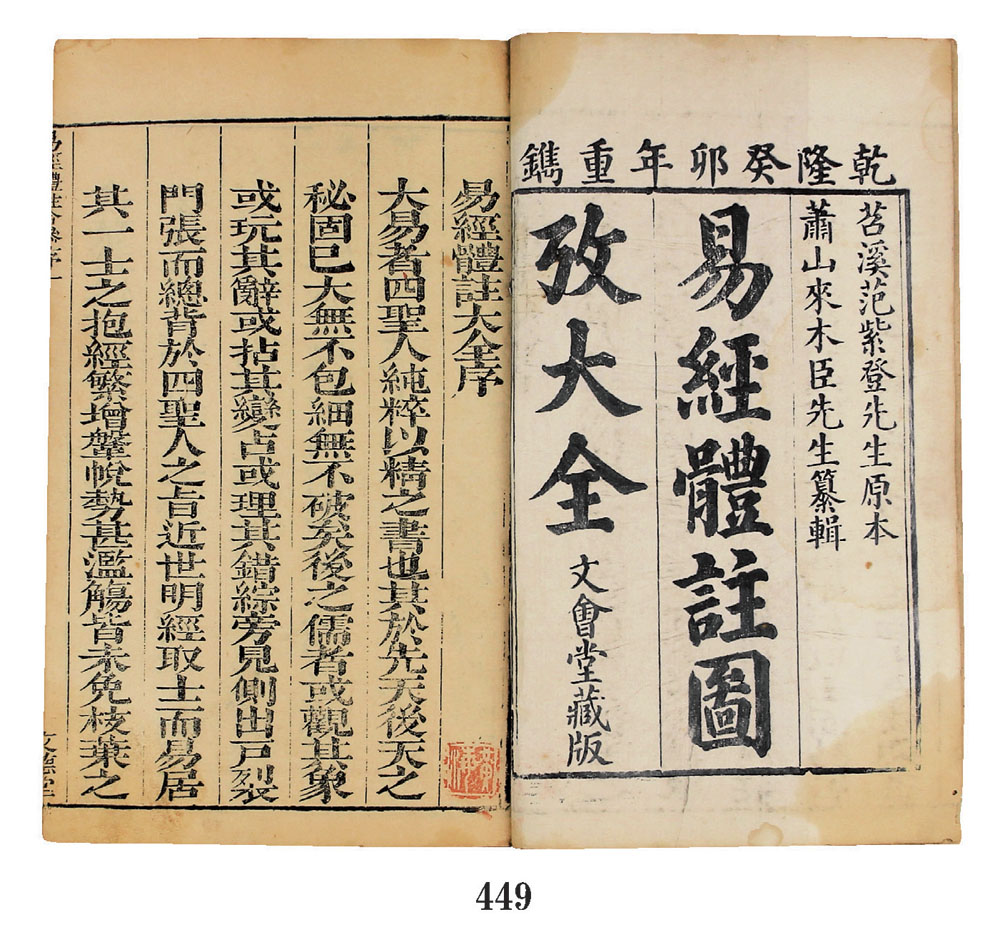 乾隆癸卯年重鐫
苕溪范紫登先生原本
蕭山來木臣先生纂輯
易經體註圖
攷大全
文會堂藏版
易經體註大全序
大易者四聖人純粹以精之書也其於先天後天之
秘固已大無不包細無不破矣後之儒者或觀其象
或玩其辭或拈其變占或理其錯綜旁見側出戸裂
門張而總背於四聖人之旨近世明經取士而易居
其一士之抱經繁增鞶帨勢甚濫觴皆未免枝葉之
449